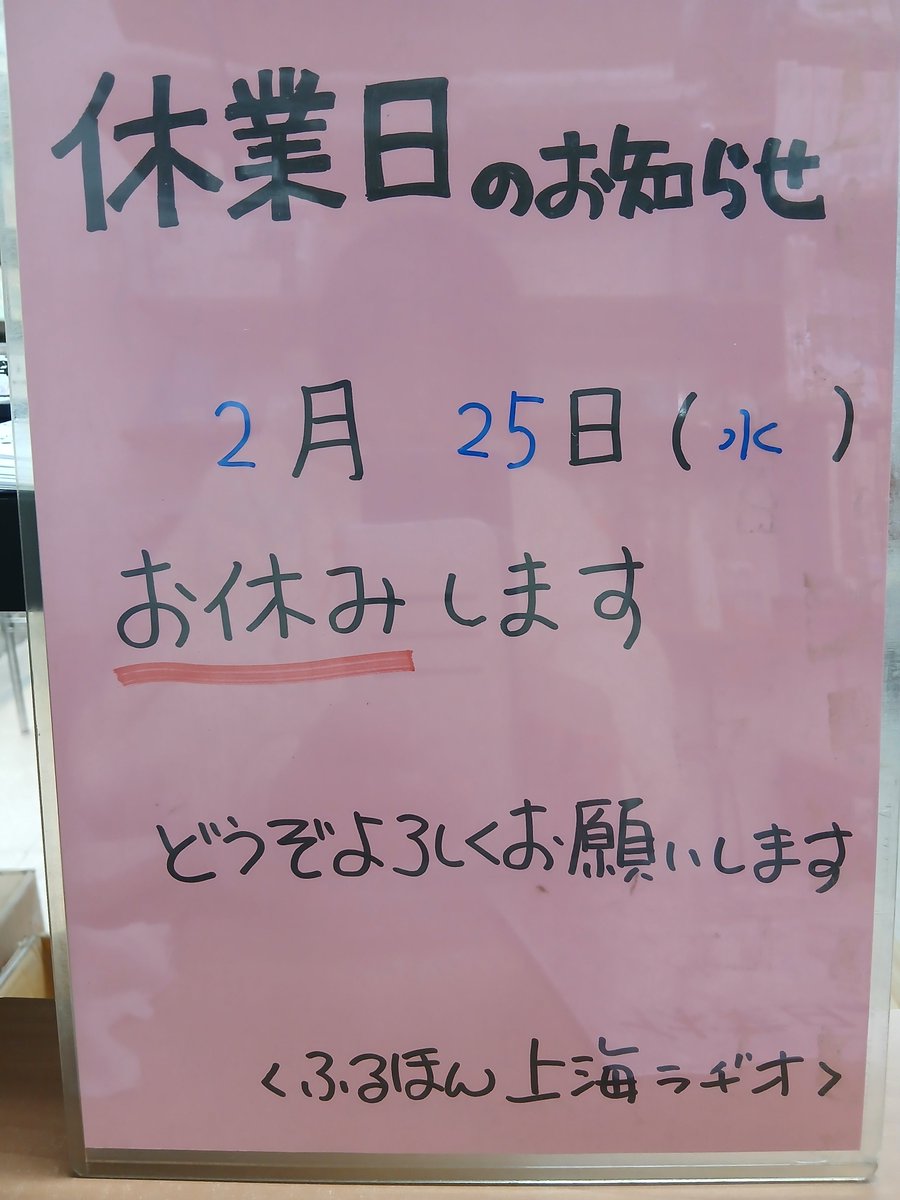 休業日のお知らせ
2月 25日(水)
お休みします
どうぞよろしくお願いします
<ふるほん上海ラヂオ>